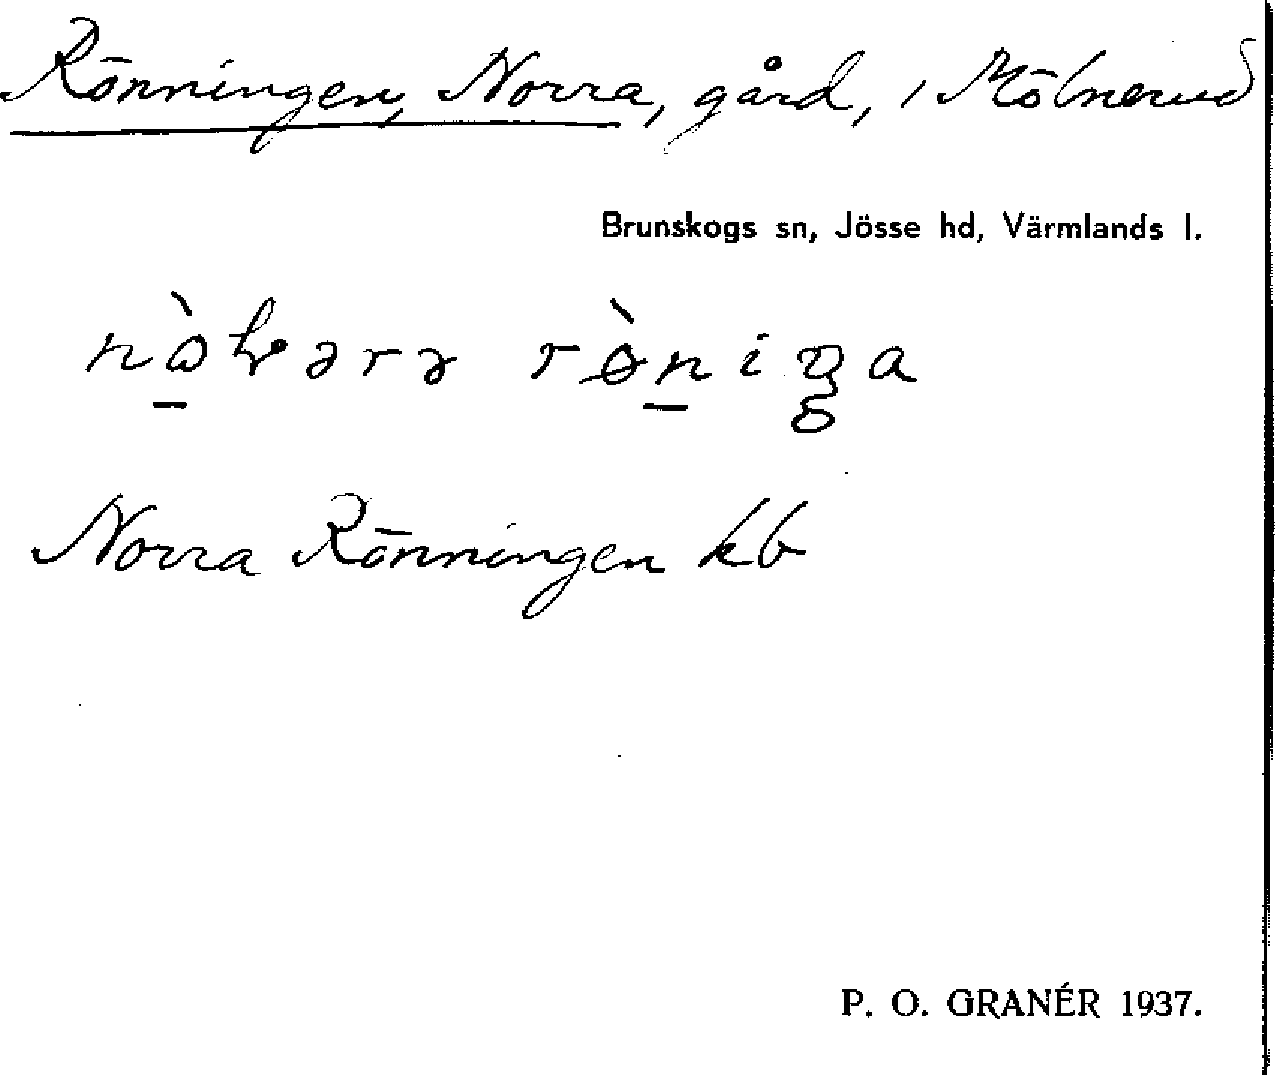 Rönningen, Norra, gård, i Mölnerud
Brunskogs sn, Jösse hd, Värmlands l.
Norra Rönningen kb
P. O. GRANÉR 1937.